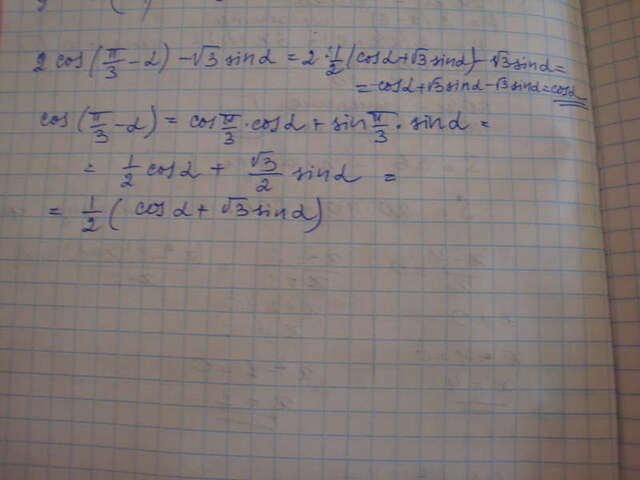 2 cos(π/3 - α) - √3 sinα = 2 · 1/2 (cosα + √3 sinα) - √3 sinα =
= cosα + √3 sinα - √3 sinα = cosα
cos(π/3 - α) = cos π/3 · cosα + sin π/3 · sinα =
= 1/2 cosα + √3/2 sinα =
= 1/2 ( cosα + √3 sinα)